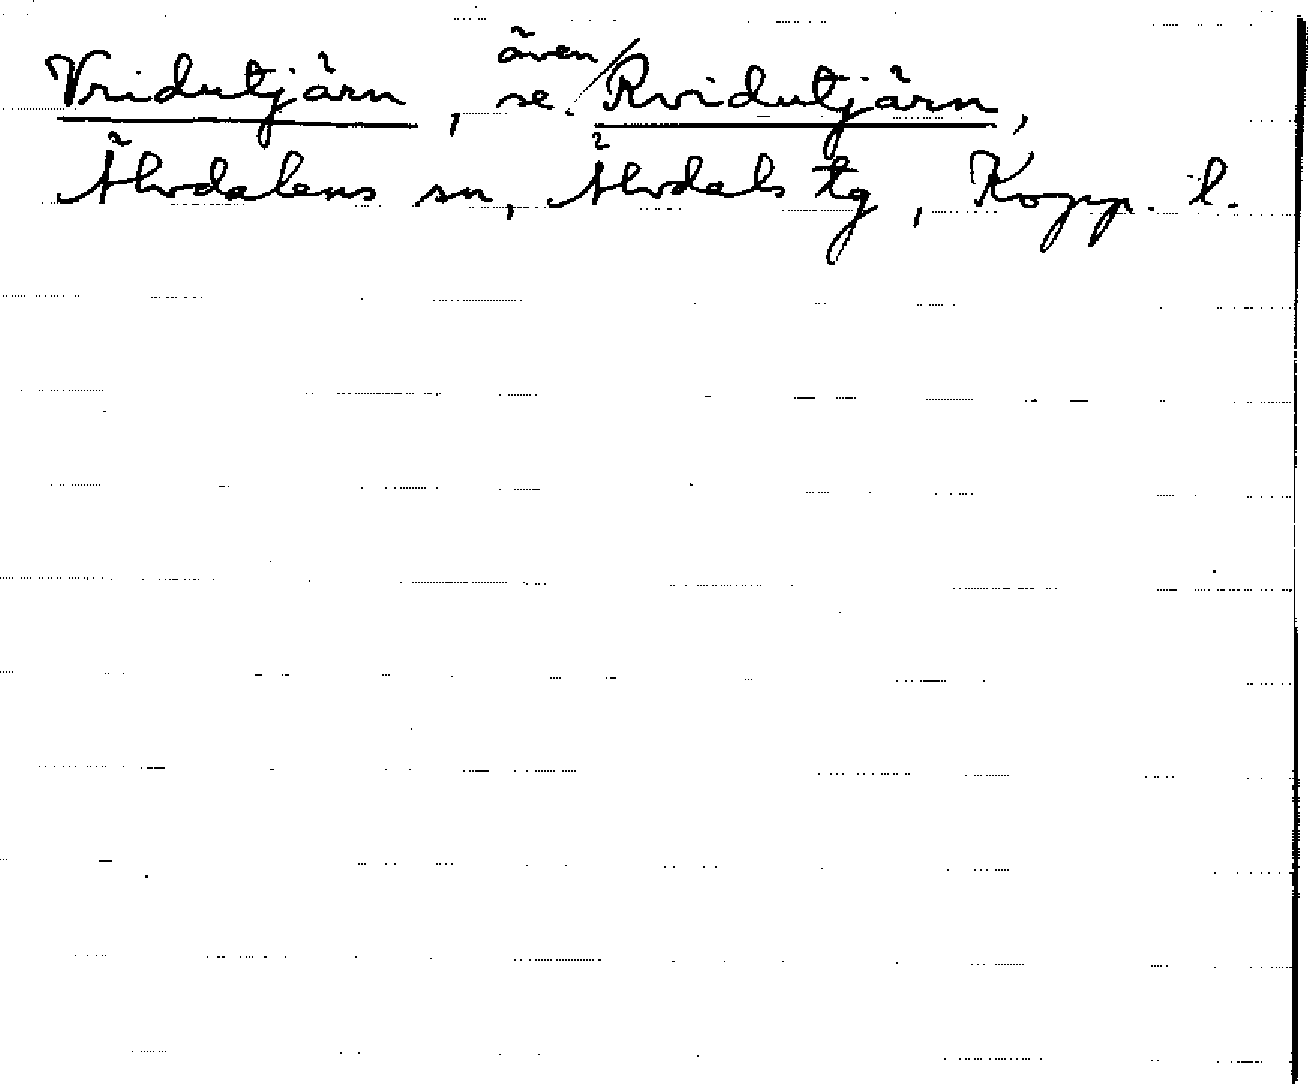 Vridutjärn, se även Rvidutjärn,
Älvdalens sn, Älvdals tg, Kopp. l.